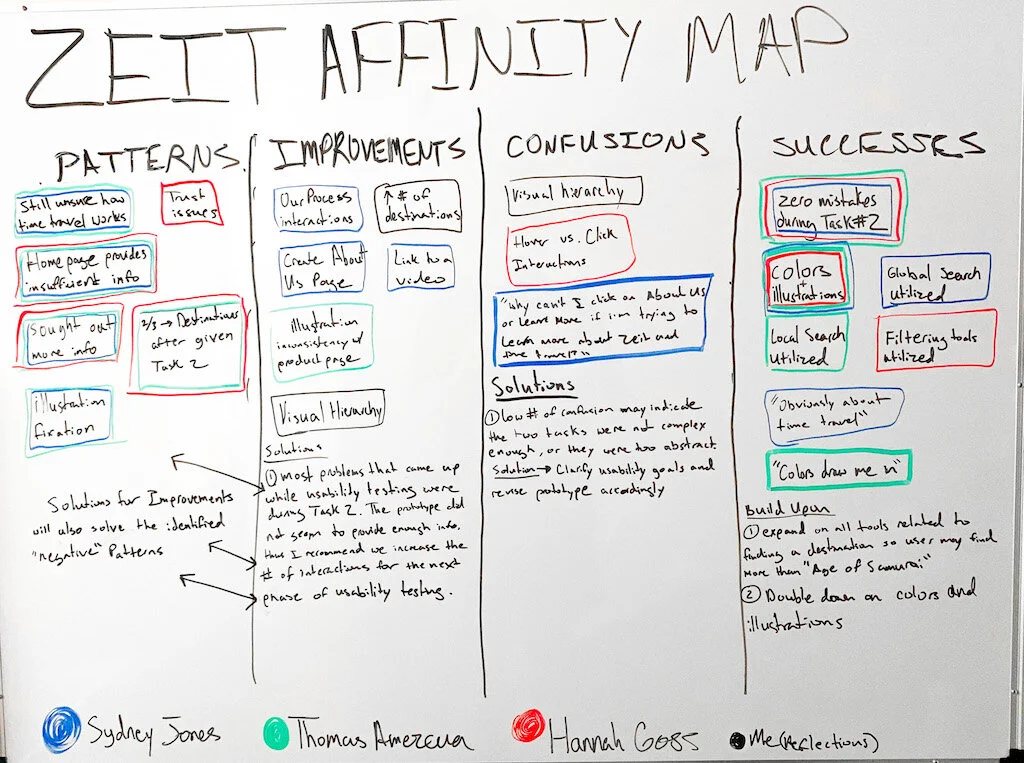 ZEIT AFFINITY MAP
PATTERNS
Still unsure how
time travel works
Trust
issues
Home page provides
insufficient info
Sought out
more info
2/3 → Destinations
after given
Task 2
illustration
fixation
Solutions for Improvements
will also solve the identified
"negative" Patterns
IMPROVEMENTS
Our Process
interactions
↑ # of
destinations
Create About
Us Page
Link to a
video
illustration
inconsistency of
product page
Visual Hierarchy
Solutions
① most problems that came up
while usability testing were
during Task 2. The prototype did
not seem to provide enough info,
thus I recommend we increase the
# of interactions for the next
phase of usability testing.
CONFUSIONS
Visual hierarchy
Hover vs. Click
Interactions
"Why can't I click on About Us
or Learn More if i'm trying to
Learn more about Zeit and
time travel?"
Solutions
① low # of confusion may indicate
the two tasks were not complex
enough, or they were too abstract.
Solution → Clarify usability goals and
revise prototype accordingly
SUCCESSES
zero mistakes
during Task #2
Colors
+
illustrations
Global Search
utilized
Local Search
utilized
Filtering tools
utilized
"Obviously about
time travel"
"Colors draw me in"
Build Upon
① expand on all tools related to
finding a destination so user may find
more than "Age of Samurai"
② Double down on colors and
illustrations
Sydney Jones
Thomas
Hannah
Me (reflections)